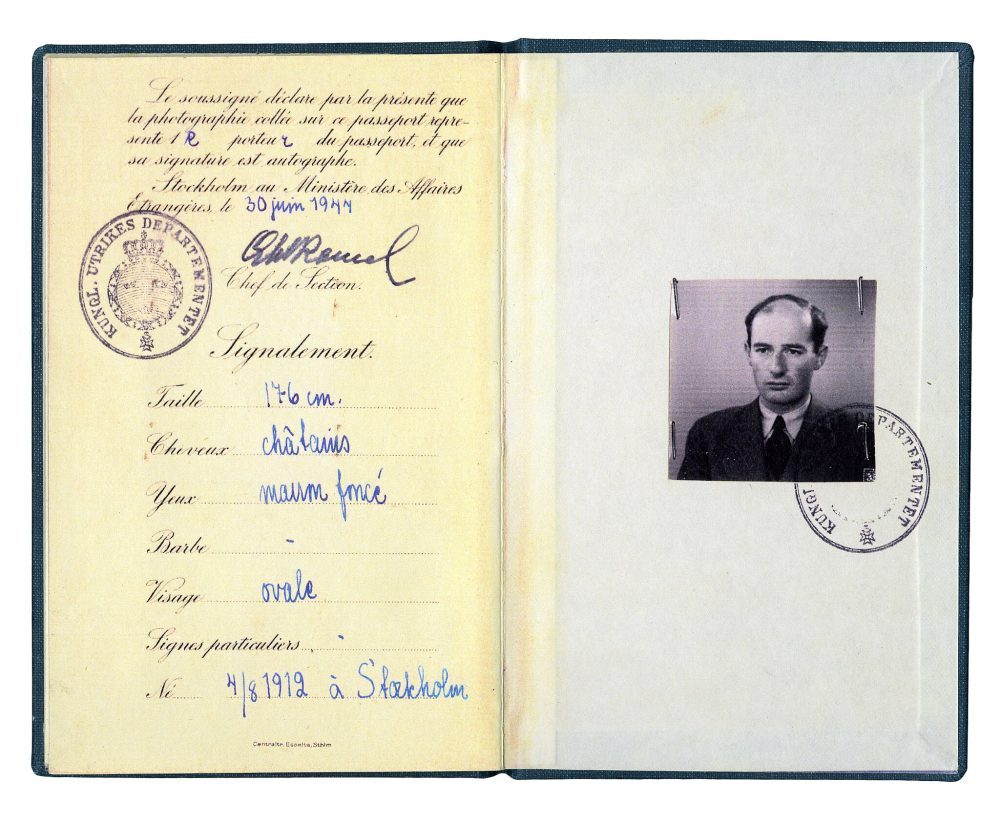 Le soussigné déclare par la présente que
la photographie collée sur ce passeport repré-
sente le porteur du passeport, et que
sa signature est autographe.
Stockholm au Ministère des Affaires
Etrangères, le 30 juin 1944
KUNGL. UTRIKES DEPARTEMENTET
Chef de Section.
Signalement.
Taille 176 cm.
Cheveux châtains
Yeux marron foncé
Barbe -
Visage ovale
Signes particuliers -
Né 4/8 1912 à Stockholm
Centraltr. Esselte, Sthlm
KUNGL. DEPARTEMENTET